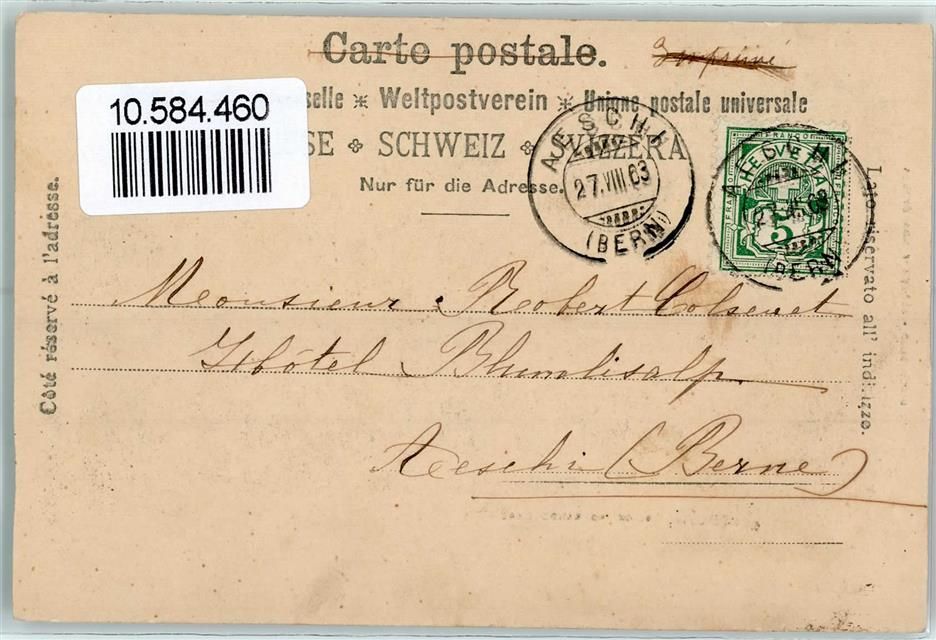 Carte postale.
10.584.460
selle * Weltpostverein * Unione postale universale
SSE ✤ SCHWEIZ ✤ SVIZZERA
Nur für die Adresse.
AESCHI
27.VIII.03
(BERN)
FRANCO
HELVETIA
5
(BERN)
Côté réservé à l'adresse.
Lato riservato all' indirizzo.
Monsieur Robert
Hôtel Blumlisalp.
Aeschi (Berne)